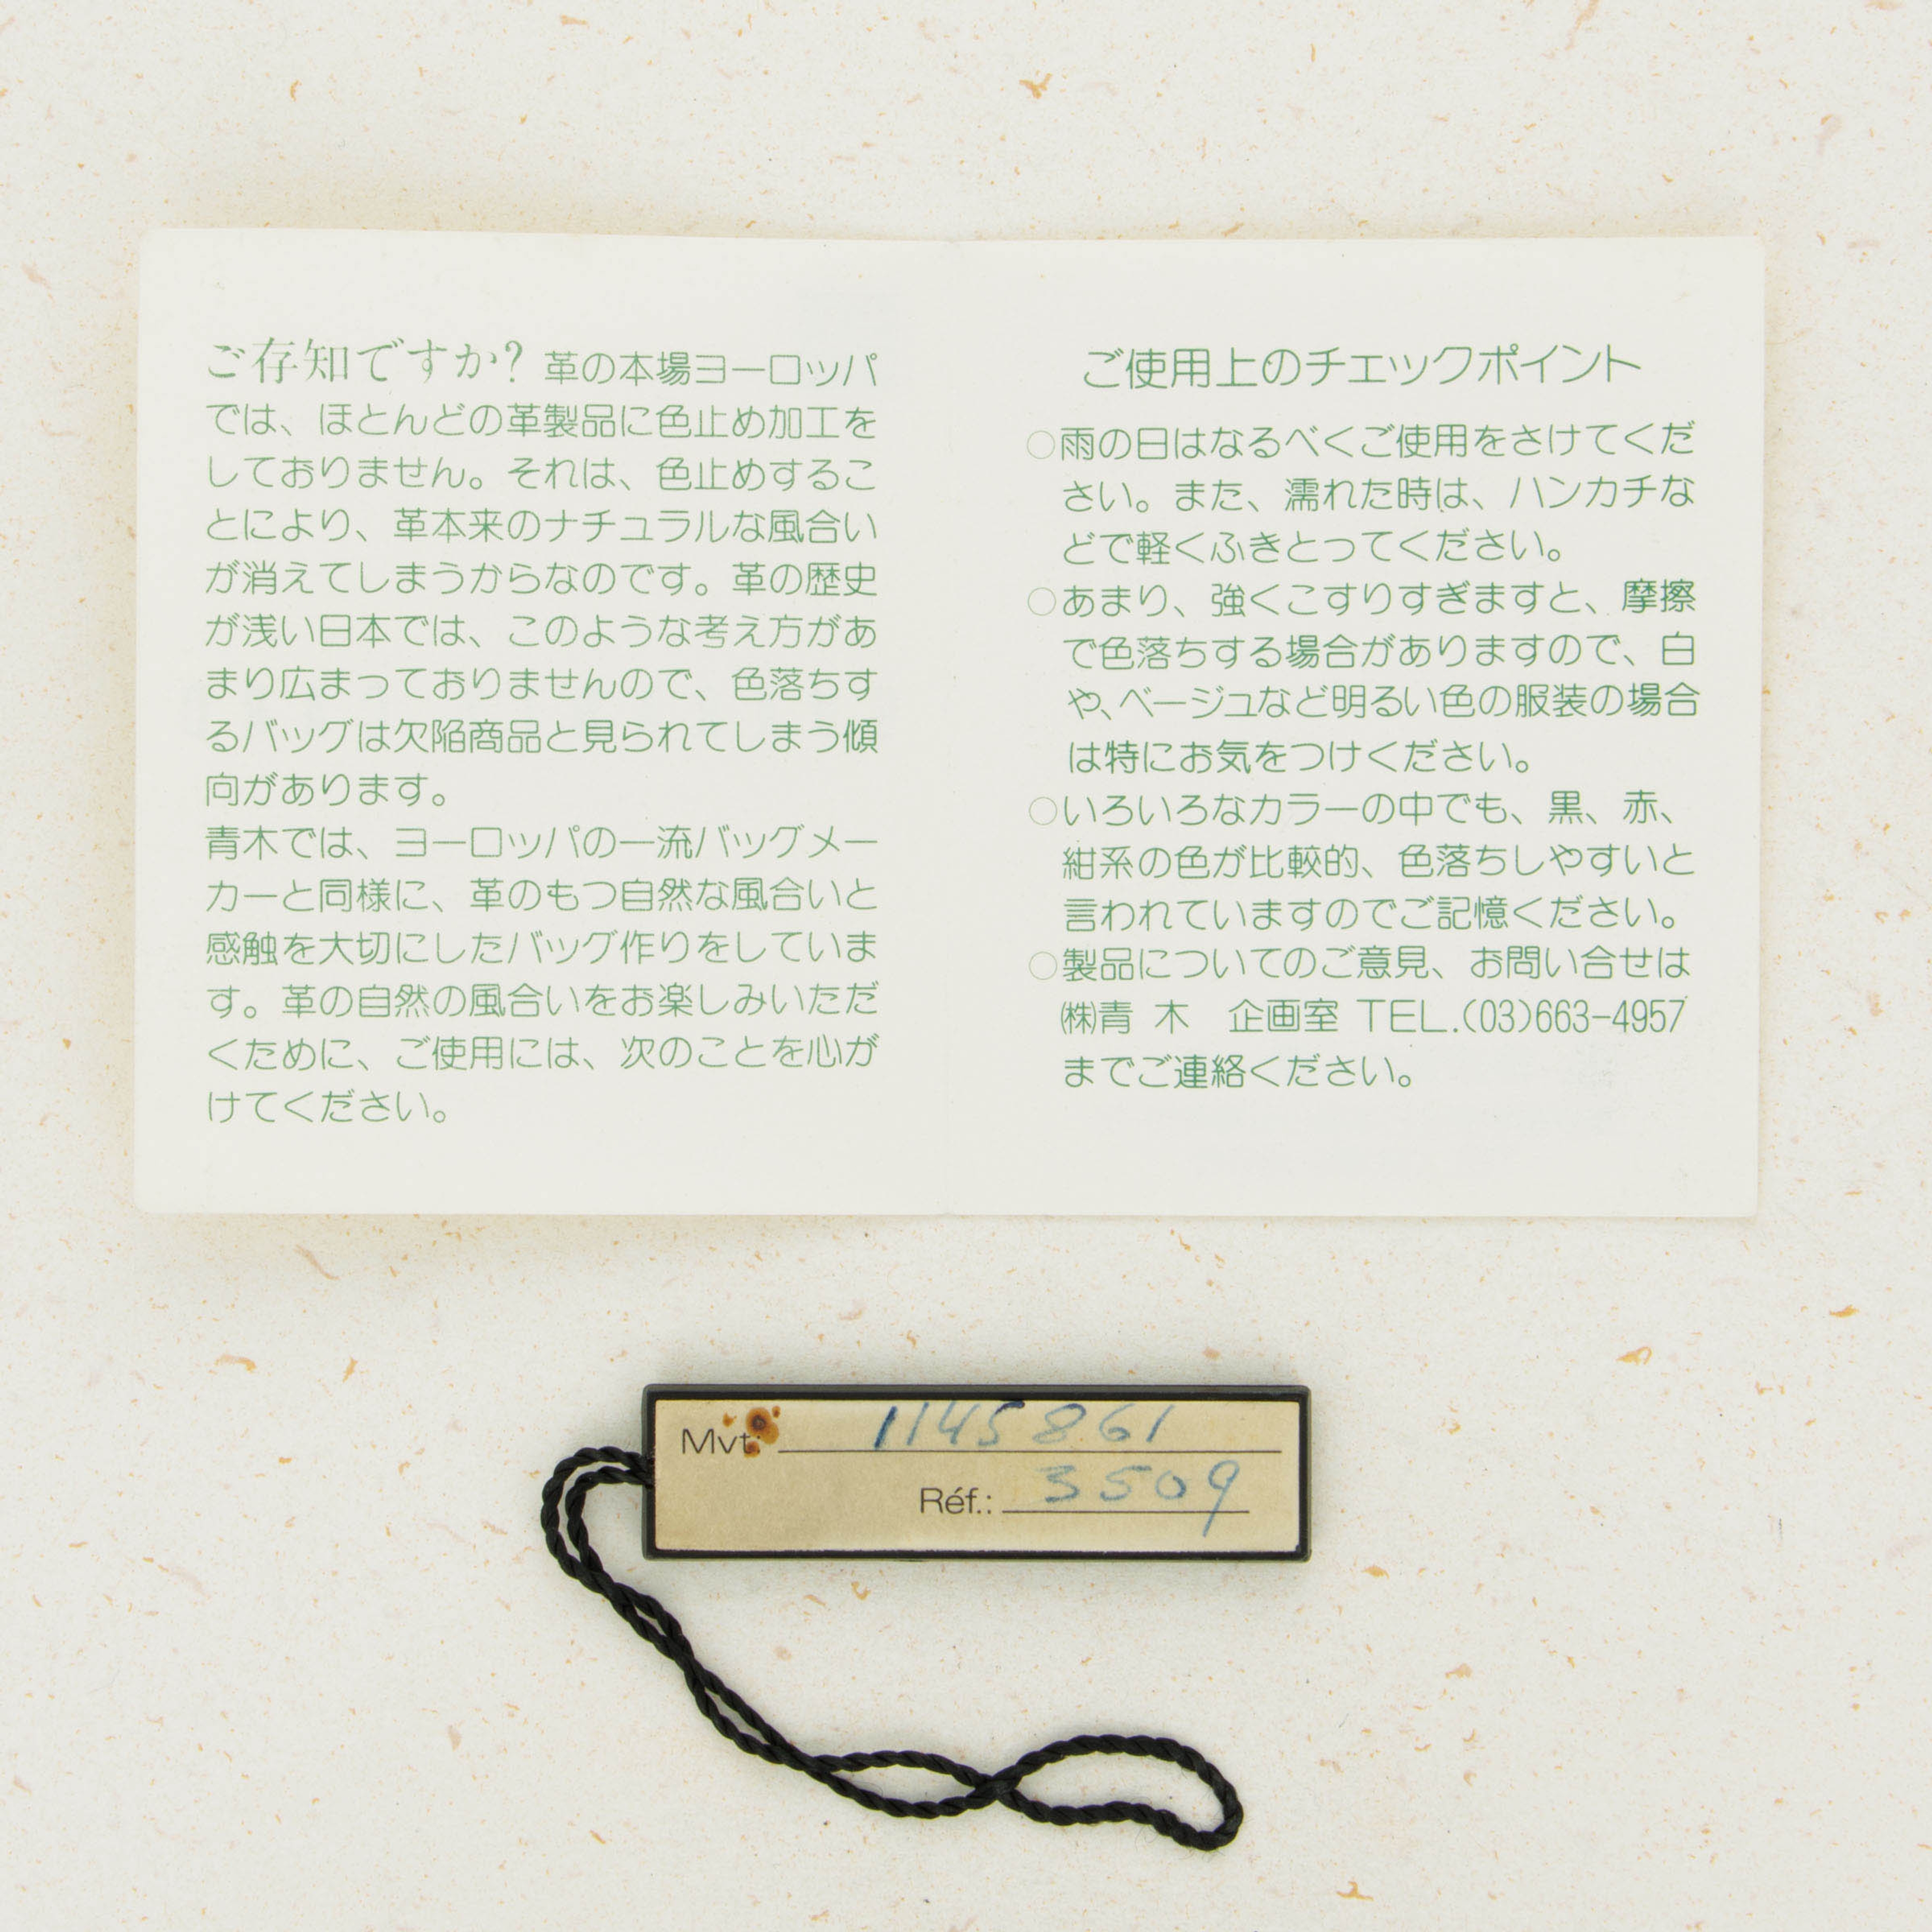 ご存知ですか? 革の本場ヨーロッパ
では、ほとんどの革製品に色止め加工を
しておりません。それは、色止めするこ
とにより、革本来のナチュラルな風合い
が消えてしまうからなのです。革の歴史
が浅い日本では、このような考え方があ
まり広まっておりませんので、色落ちす
るバッグは欠陥商品と見られてしまう傾
向があります。
青木では、ヨーロッパの一流バッグメー
カーと同様に、革のもつ自然な風合いと
感触を大切にしたバッグ作りをしていま
す。革の自然の風合いをお楽しみいただ
くために、ご使用には、次のことを心が
けてください。
ご使用上のチェックポイント
○雨の日はなるべくご使用をさけてくだ
さい。また、濡れた時は、ハンカチな
どで軽くふきとってください。
○あまり、強くこすりすぎますと、摩擦
で色落ちする場合がありますので、白
や、ベージュなど明るい色の服装の場合
は特にお気をつけください。
○いろいろなカラーの中でも、黒、赤、
紺系の色が比較的、色落ちしやすいと
言われていますのでご記憶ください。
○製品についてのご意見、お問い合せは
㈱青 木　企画室 TEL.(03)663-4957
までご連絡ください。
Mvt: 1145861
Réf.: 3509